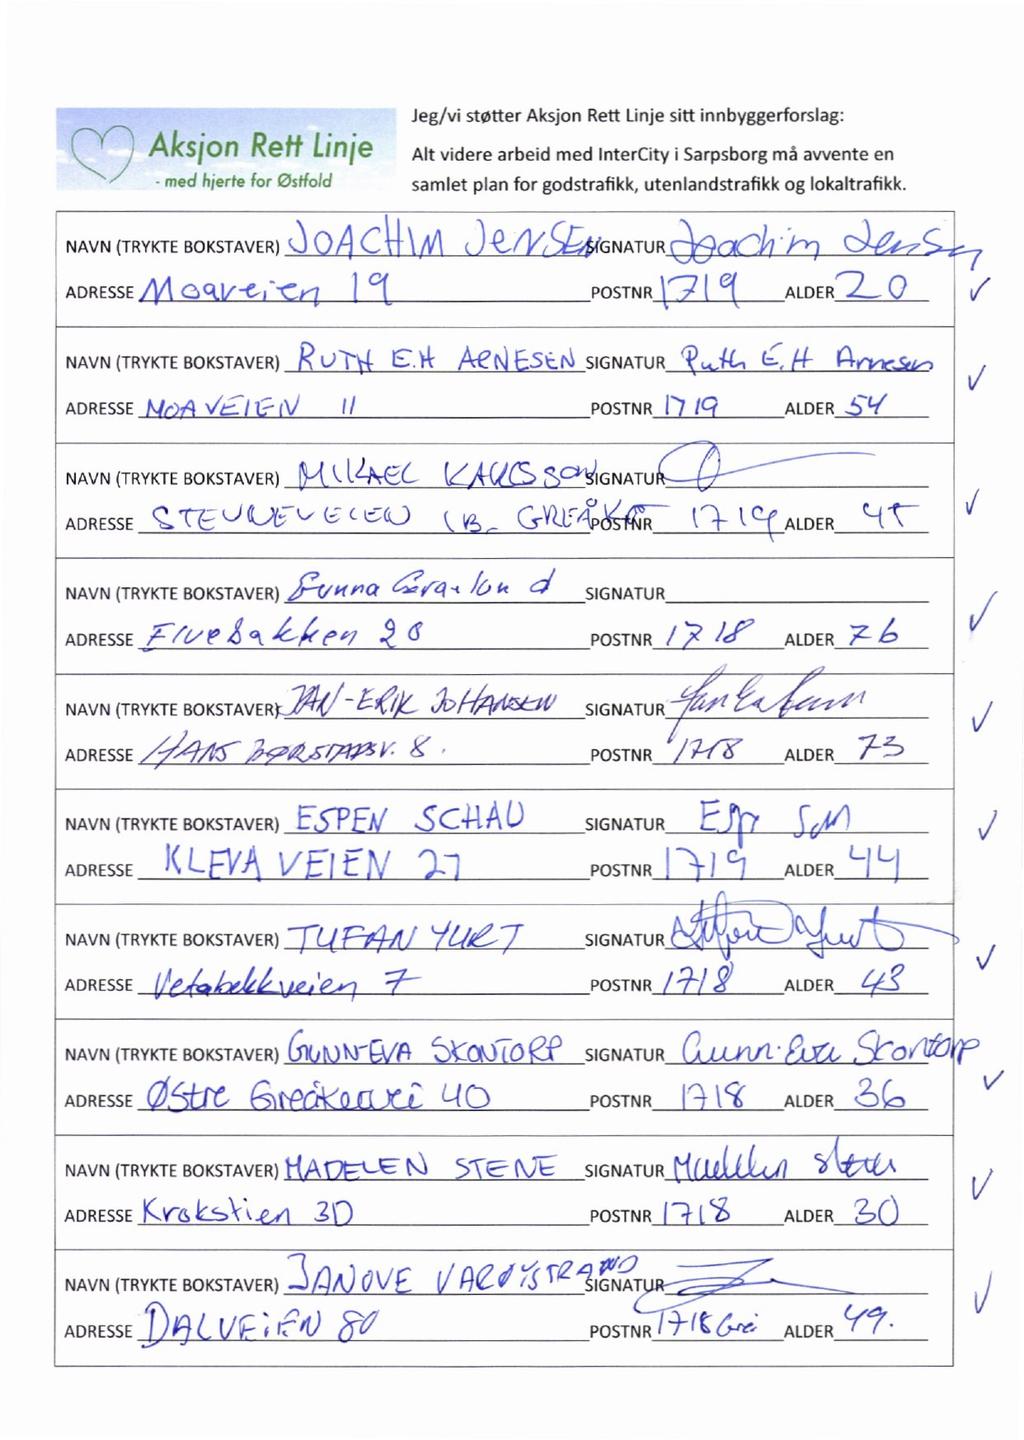 Aksjon Rett Linje
- med hjerte for Østfold
Jeg/vi støtter Aksjon Rett Linje sitt innbyggerforslag:
Alt videre arbeid med InterCity i Sarpsborg må avvente en
samlet plan for godstrafikk, utenlandstrafikk og lokaltrafikk.
NAVN (TRYKTE BOKSTAVER) JOACHIM JENSEN SIGNATUR Joachim Jensen
ADRESSE Moaveien 19 POSTNR 1719 ALDER 20
NAVN (TRYKTE BOKSTAVER) RUTH E.H ARNESEN SIGNATUR Ruth E.H Arnesen
ADRESSE MOAVEIEN 11 POSTNR 1719 ALDER 54
NAVN (TRYKTE BOKSTAVER) MIKAEL KARLSSON SIGNATUR
ADRESSE GREÅKER POSTNR 1719 ALDER
NAVN (TRYKTE BOKSTAVER) Gunna SIGNATUR
ADRESSE POSTNR 1718 ALDER 76
NAVN (TRYKTE BOKSTAVER) JAN-ERIK JOHANSEN SIGNATUR
ADRESSE HANS POSTNR 1718 ALDER 73
NAVN (TRYKTE BOKSTAVER) ESPEN SCHAU SIGNATUR
ADRESSE KLEVAVEIEN 27 POSTNR 1719 ALDER 44
NAVN (TRYKTE BOKSTAVER) TUFAN YURT SIGNATUR
ADRESSE Vetabekkveien 7 POSTNR 1718 ALDER 43
NAVN (TRYKTE BOKSTAVER) GUNN-EVA SKONTORP SIGNATUR Gunn-Eva Skontorp
ADRESSE Østre Greåkervei 40 POSTNR 1718 ALDER 36
NAVN (TRYKTE BOKSTAVER) MADELEN STENE SIGNATUR Madelen Stene
ADRESSE Krokstien 3D POSTNR 1718 ALDER 30
NAVN (TRYKTE BOKSTAVER) JANOVE VARØYSTRAND SIGNATUR
ADRESSE DALVEIEN 80 POSTNR 1718 Greå ALDER 49.